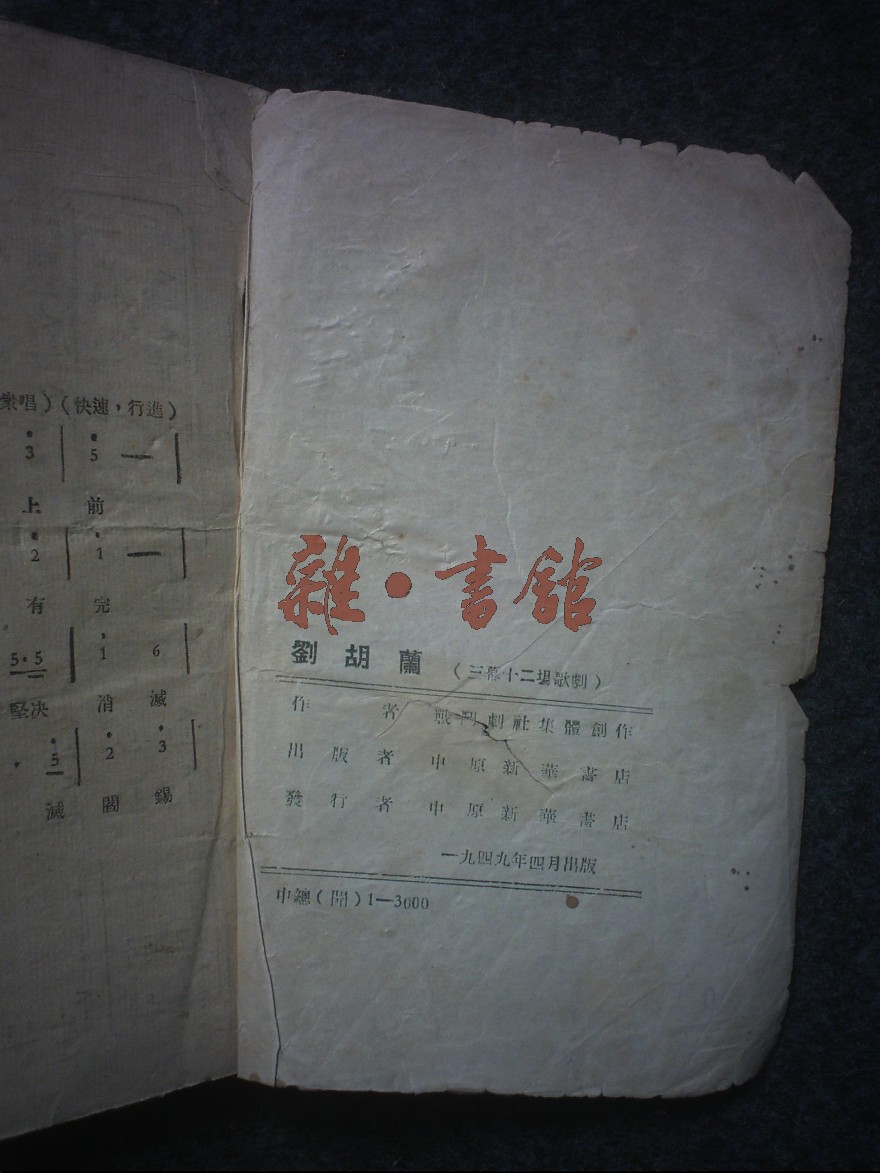 衆唱）（快速，行進）
3 | 5 — |
上 前
2 | 1 — |
有 完
5·5 | 1 6 |
堅决 消 滅
5 | 2 3 |
滅 閻 錫
雜·書館
劉胡蘭 （三幕十二場歌劇）
作者 戰鬥劇社集體創作
出版者 中原新華書店
發行者 中原新華書店
一九四九年四月出版
中總（開）1—3000